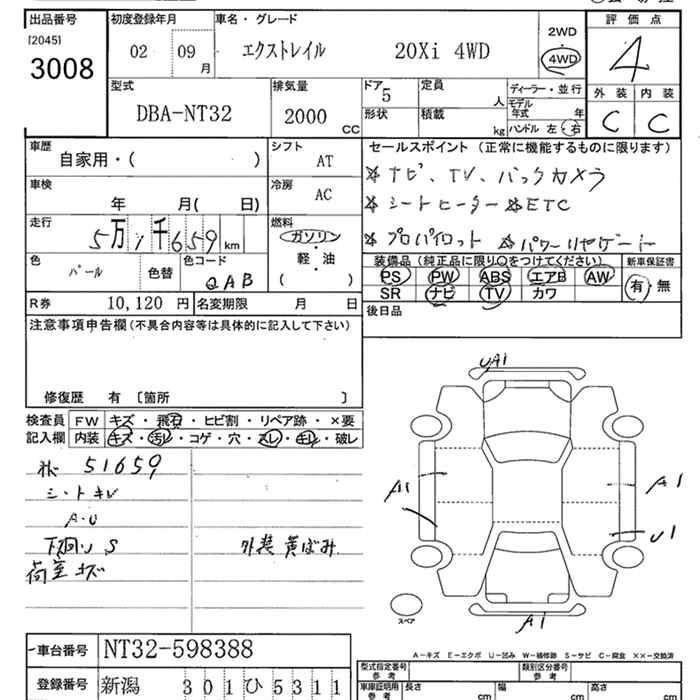 出品番号
[2045]
3008
初度登録年月
02 09 月
車名・グレード
エクストレイル 20Xi 4WD
2WD
4WD
評価点
4
外装 内装
C C
型式
DBA-NT32
排気量
2000 CC
ドア
5
形状
定員
人
積載
kg
ディーラー・並行
モデル年式 年
ハンドル 左・右
車歴
自家用・( )
シフト
AT
車検
年 月( 日)
冷房
AC
走行
5万1千659 km
燃料
ガソリン
軽・油
( )
色
パール
色替
色コード
QAB
R券 10,120 円
名変期限 月 日
セールスポイント (正常に機能するものに限ります)
☆ナビ、TV、バックカメラ
☆シートヒーター ☆ETC
☆プロパイロット ☆パワーリヤゲート
装備品(純正品に限り○をつけてください)
新車保証書
PS PW ABS エアB AW
SR ナビ TV カワ
有・無
後日品
注意事項申告欄(不具合内容等は具体的に記入して下さい)
修復歴 有 〔箇所 〕
検査員記入欄
FW キズ・飛石・ヒビ割・リペア跡・×要
内装 キズ・汚レ・コゲ・穴・スレ・キレ・破レ
51659
シートキレ
A・U
下廻り S
荷室キズ
外装 黄ばみ
UA1
A1
A1
U1
A1
スペア
A-キズ E-エクボ U-凹み W-補修跡 S-サビ C-腐食 ××-交換済
車台番号 NT32-598388
登録番号 新潟 301ひ5311
型式指定番号
参考
類別区分番号
参考
車庫証明用
参考
長さ cm
幅 cm
高さ cm